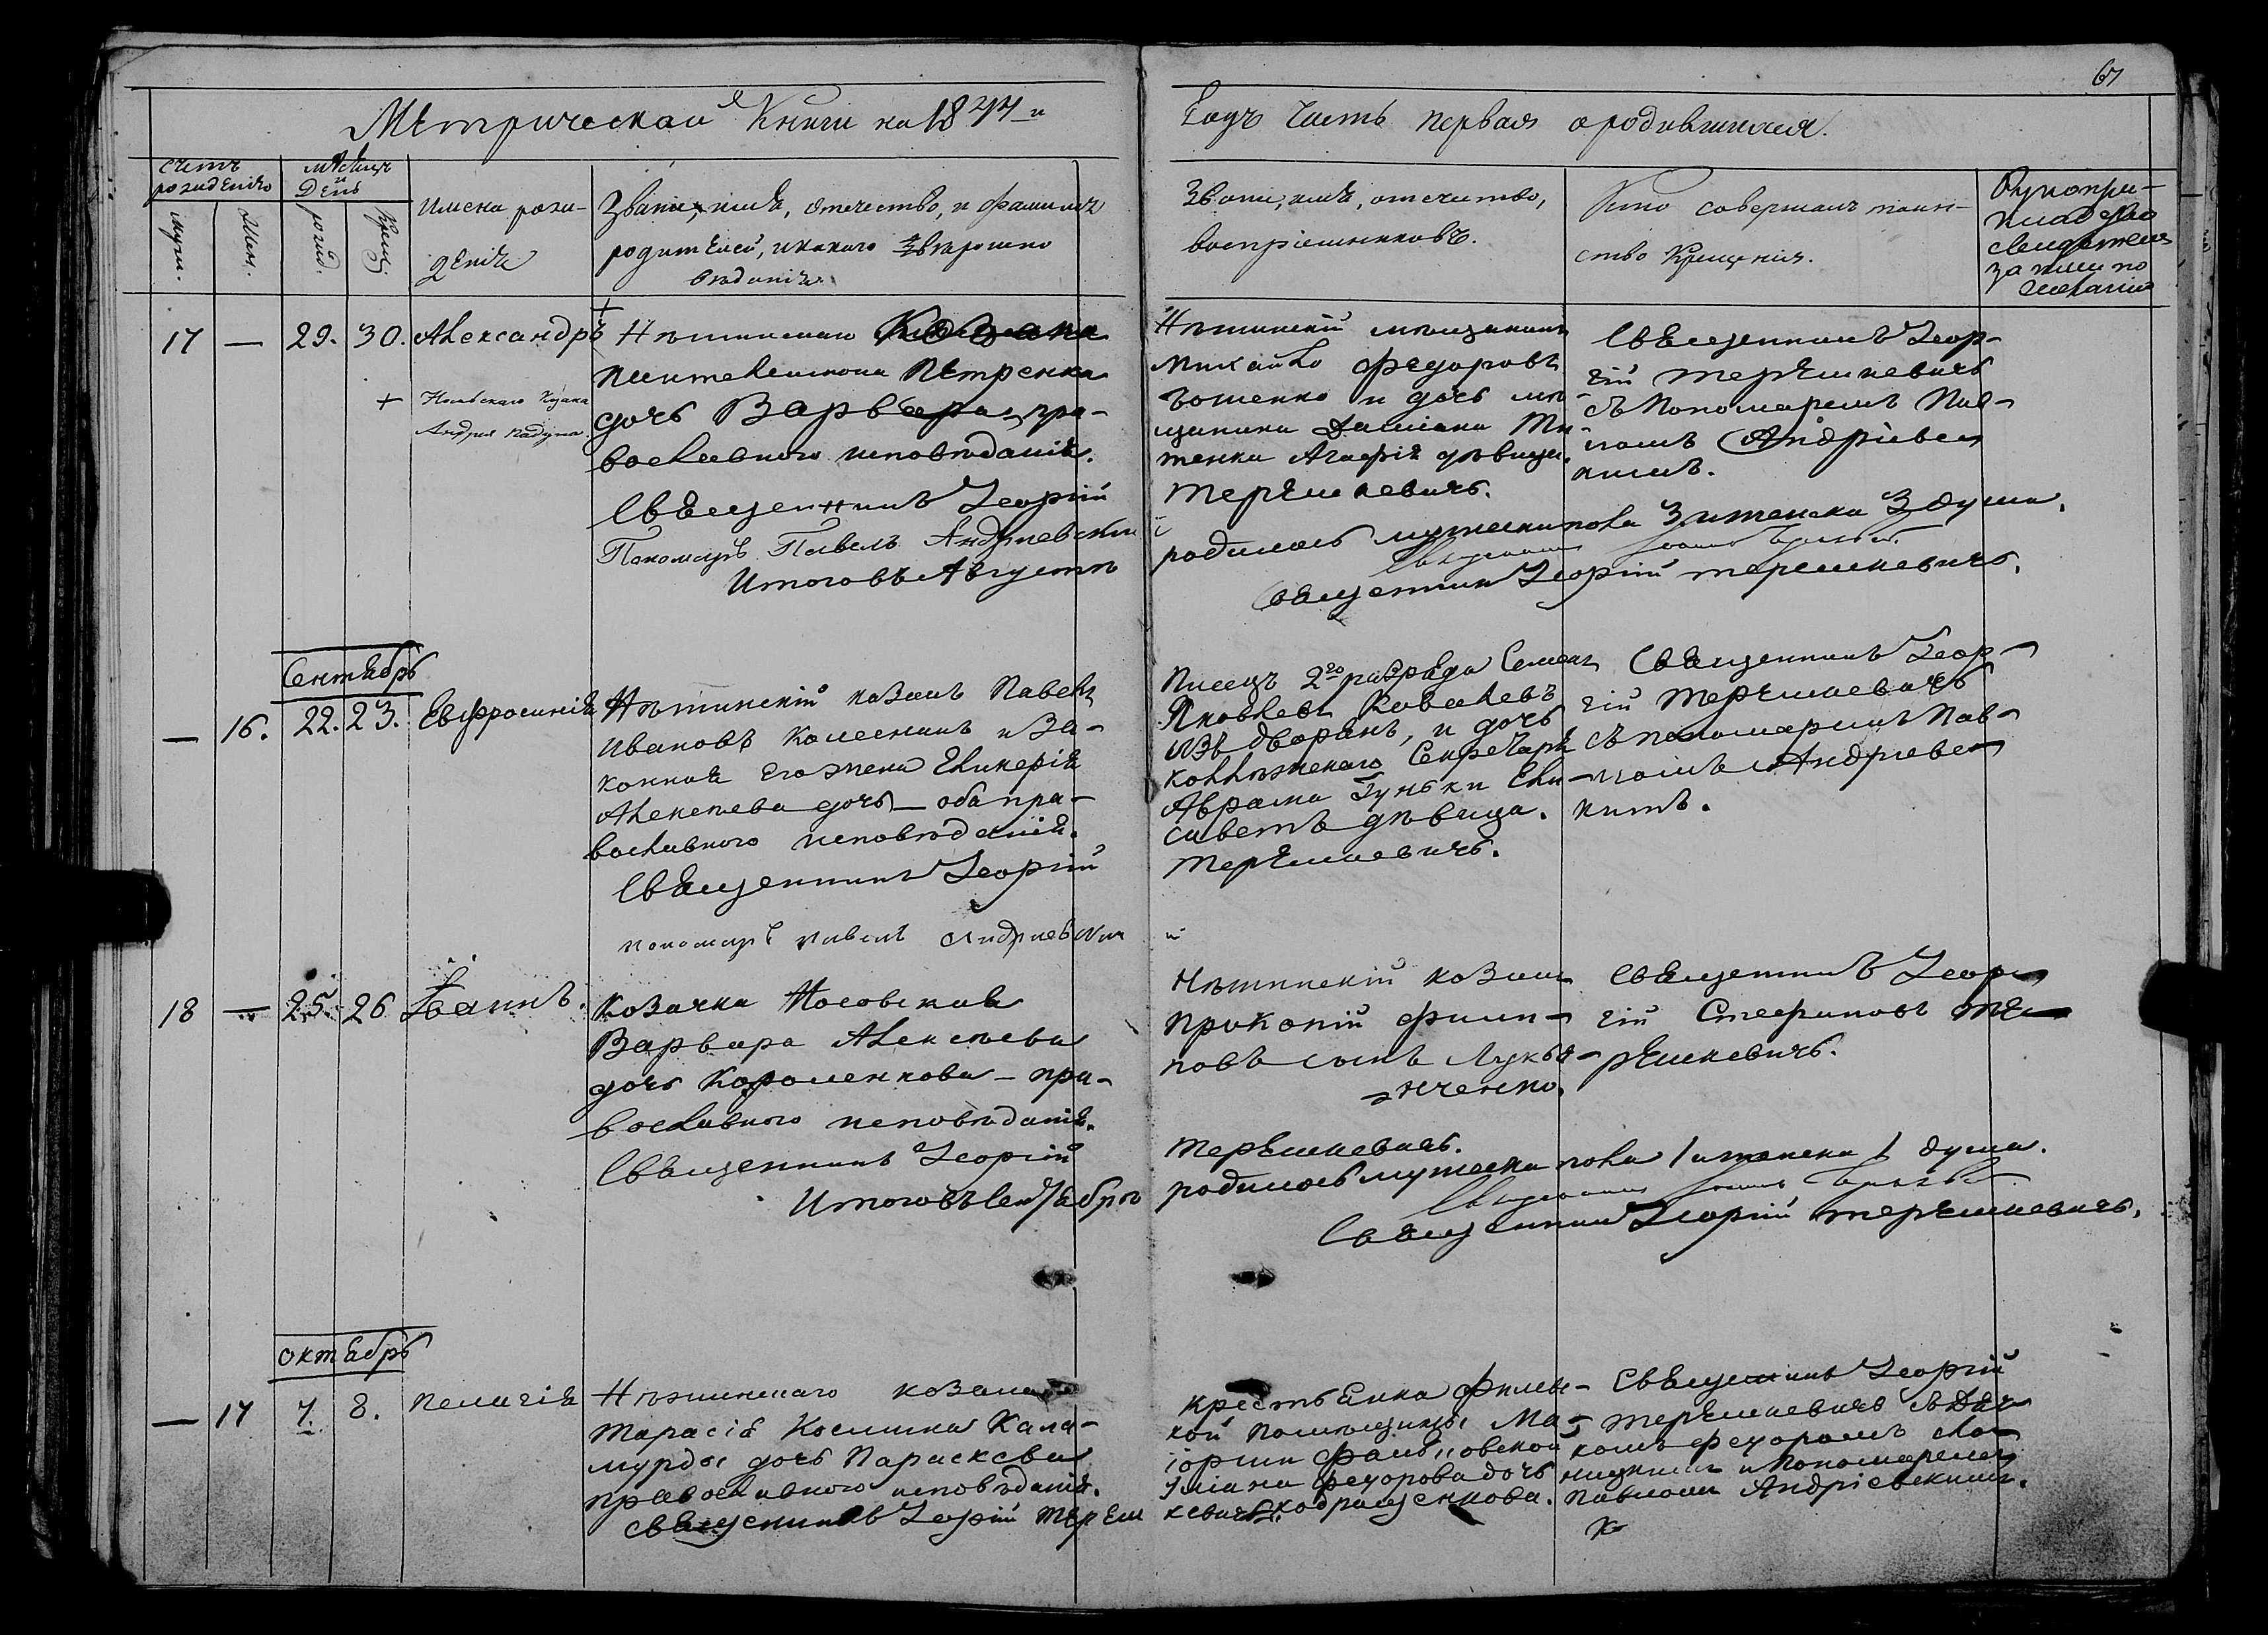 67
Метрической Книги на 1844 й
Годъ Часть первая о родившихся.
счетъ рожденія
мѣсяцъ и день
мужи.
женс.
рожд.
крещ.
Имена рожденія
Званіе, имя, отечество, и фамилія
родителей, и какого вѣроисповѣданія.
Званіе, имя, отечество,
воспріемниковъ.
Кто совершалъ таин-
ство Крещенія.
Рукопри-
кладство
свидетелей
записи по
желанію
17 — 29. 30. Александръ
+ Козака
Андрея
+
Нѣжинскаго Козака
Пантелеимона Петренка
дочь Варвара, пра-
вославного исповѣданія.
Священникъ Георгій
Пономарь Павелъ Андриевский
Итого въ Августѣ
Нѣжинскій мѣщанинъ
Михайло Федоровъ
и дочь мѣ-
щанина Даміана
Агафія дѣвица.
Терешкевичь.
родилось мужеска пола 3 и женска 3 души.
Священникъ
Священникъ Георгій Терешкевичь.
Священникъ Геор-
гій Терешкевичь
съ Пономаремъ Пав-
ломъ Андріевс-
кимъ.
Сентябрь
— 16. 22. 23. Евфросинія
Нѣжинскій козакъ Павелъ
Ивановъ Колесникъ и За-
конная его жена Гликерія
Алексеева дочь — оба пра-
вославного исповѣданія.
Священникъ Георгій
пономарь павелъ Андриевский
Писецъ 2го разряда Семенъ
Яковлевъ Ковалевъ
изъ дворянъ, и дочь
коллѣжскаго Секретаря
Аврама Гуньки Ели-
саветъ дѣвица.
Терешкевичь.
Священникъ Геор-
гій Терешкевичь
съ пономаремъ Пав-
ломъ Андриевс-
кимъ.
18 — 25. 26 Іоаннъ.
Козачка Носовская
Варвара Алексѣева
дочь Короленкова — пра-
вославного исповѣданія.
Священникъ Георгій
Итого въ Сентябрѣ
Нѣжинскій козакъ
Прокопій Филип-
повъ сынъ Лукья-
нченко.
Терешкевичь.
родилось мужеска пола 1 и женска 1 душа.
Священникъ
Священникъ Георгій Терешкевичь.
Священникъ Геор-
гій Стефановъ Те-
решкевичь.
октябрь
— 17 7. 8. Пелагія
Нѣжинскаго козака
Тарасія Космина Кала-
мурды дочь Параскева
православного исповѣданія.
Священникъ Георгій Тереш
Крестьянка
кой помѣщицы Ма-
іорши
Уліана Федорова дочь
кевичь. Кодращенкова.
Священникъ Георгій
Терешкевичь съ Дья-
комъ Федоромъ
и Пономаремъ
Павломъ Андріевскимъ.